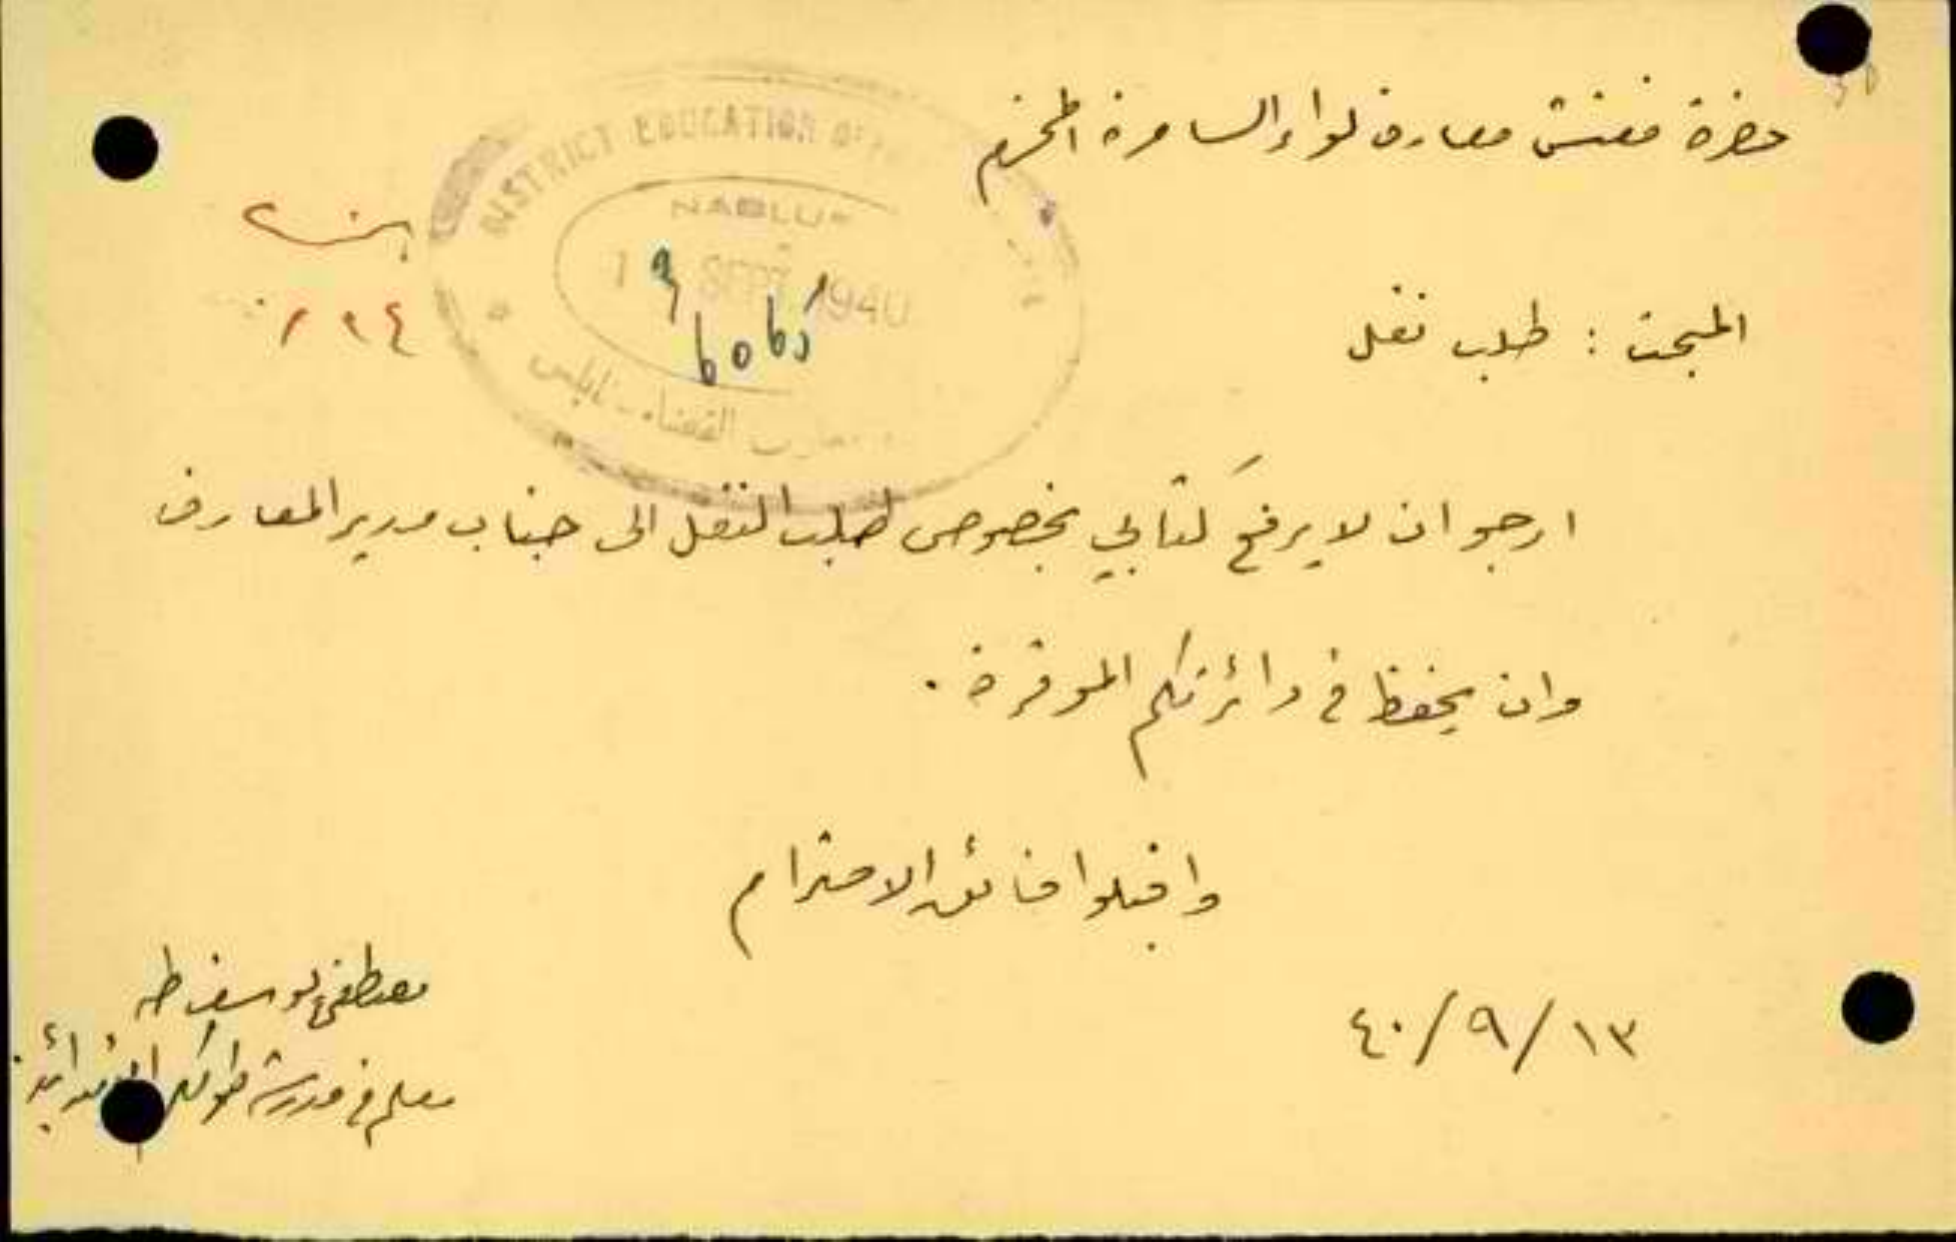 حضرة مفتش معارف لواء السامرة المحترم
DISTRICT EDUCATION
NABLUS
1 SEPT 1940
معارف القضاء - نابلس
المبحث : طلب نقل
ارجو ان لا يرفع كتابي بخصوص طلب النقل الى جناب مدير المعارف
وان يحفظ في دائرتكم الموقرة .
واقبلوا فائق الاحترام
مصطفى يوسف طه
٤٠/٩/١٣
معلم في مدرسة طولكرم الابتدائية